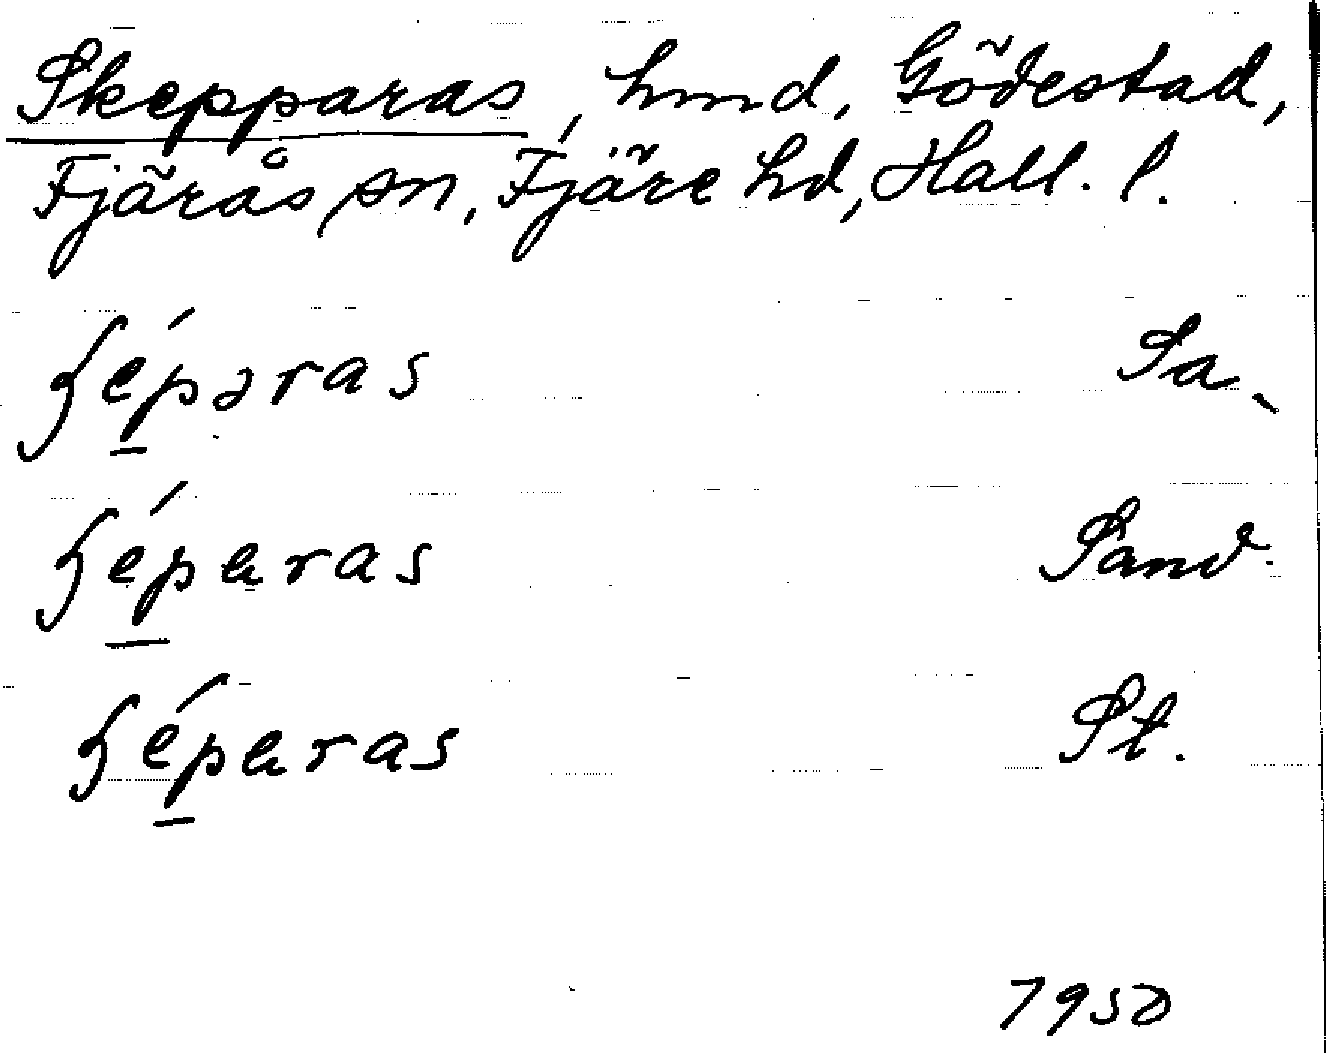 Skepparas, hmd, Gödestad,
Fjärås sn, Fjäre hd, Hall. l.
ʃé̱pəras Sa.
ʃé̱paras Sand.
ʃé̱paras St.
1950